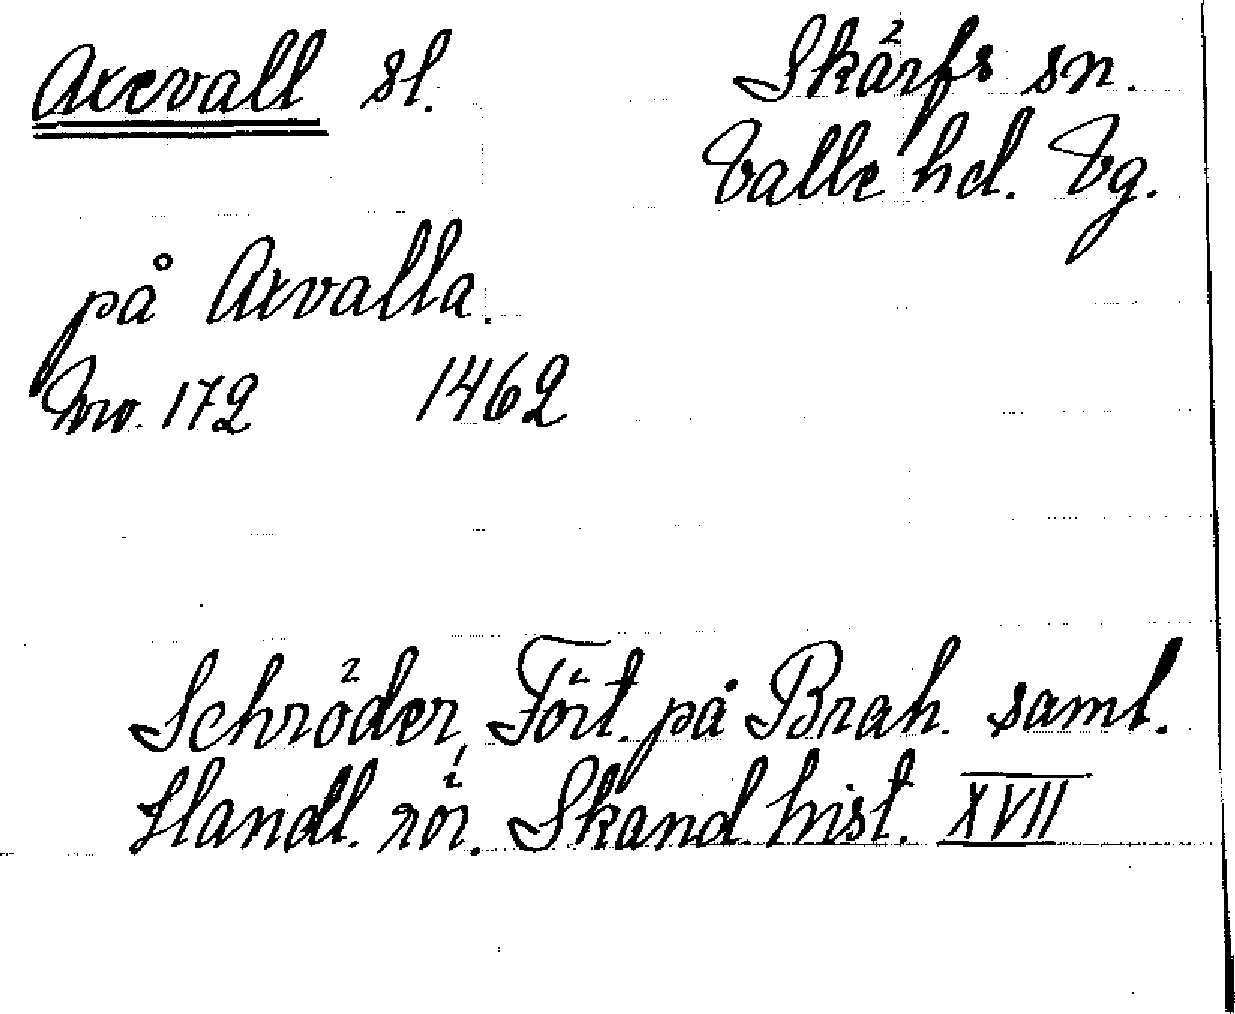 Axevall sl.
Skärfs sn.
Valle hd. Vg.
på Axvalla.
No. 172 1462
Schröder, Fört. på Brah. saml.
Handl. rör. Skand. hist. XVII